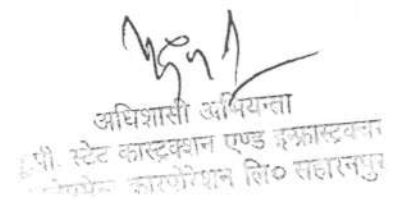 अधिशासी अभियन्ता
पी. स्टेट कास्ट्रक्शन एण्ड इन्फ्रास्ट्रक्चर
कारपोरेशन लि० सहारनपुर